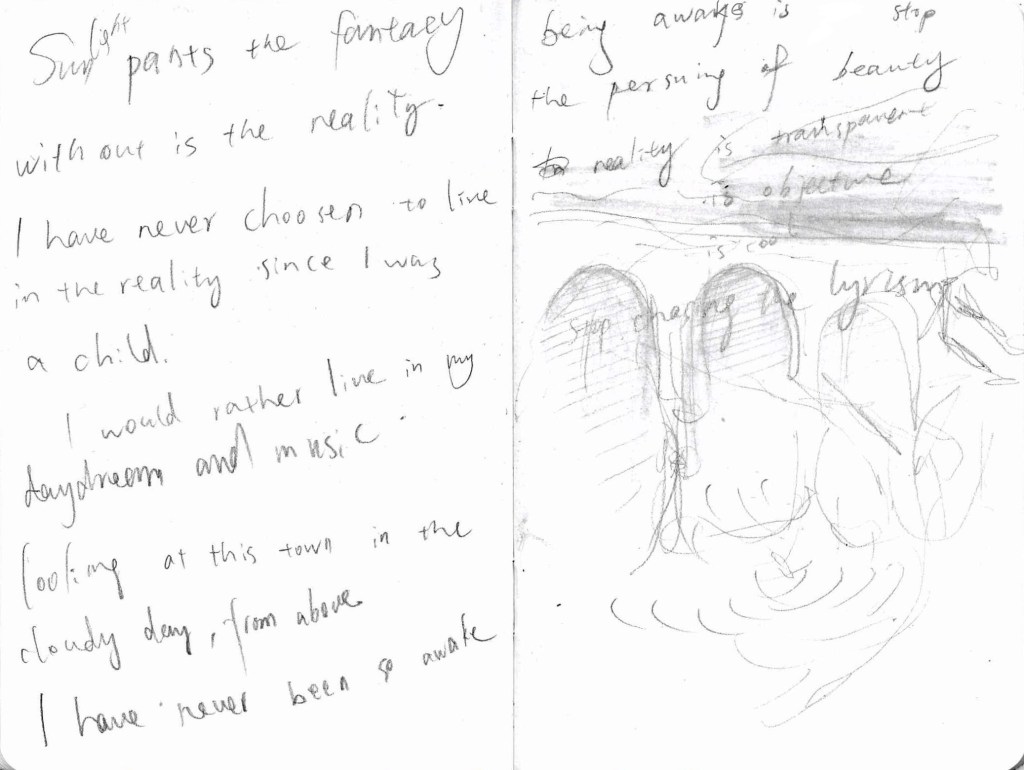 Sunlight pants the fantasy
without is the reality.
I have never choosen to live
in the reality since I was
a child.
I would rather live in my
daydream and music.
looking at this town in the
cloudy day, from above
I have never been so awake
being awake is stop
the persuing of beauty
reality is transparent
is objective
is coo
stop chasing the lyrism